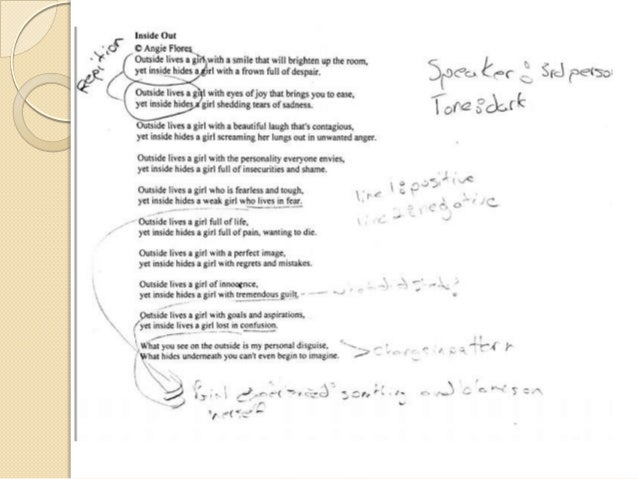 Inside Out
© Angie Flores
Outside lives a girl with a smile that will brighten up the room,
yet inside hides a girl with a frown full of despair.
Outside lives a girl with eyes of joy that brings you to ease,
yet inside hides a girl shedding tears of sadness.
Outside lives a girl with a beautiful laugh that's contagious,
yet inside hides a girl screaming her lungs out in unwanted anger.
Outside lives a girl with the personality everyone envies,
yet inside hides a girl full of insecurities and shame.
Outside lives a girl who is fearless and tough,
yet inside hides a weak girl who lives in fear.
Outside lives a girl full of life,
yet inside hides a girl full of pain, wanting to die.
Outside lives a girl with a perfect image,
yet inside hides a girl with regrets and mistakes.
Outside lives a girl of innocence,
yet inside hides a girl with tremendous guilt.
Outside lives a girl with goals and aspirations,
yet inside lives a girl lost in confusion.
What you see on the outside is my personal disguise,
What hides underneath you can't even begin to imagine.
Repition
Speaker: 3rd perso
Tone: dark
line 1: positive
line 2: negative
change in pattern